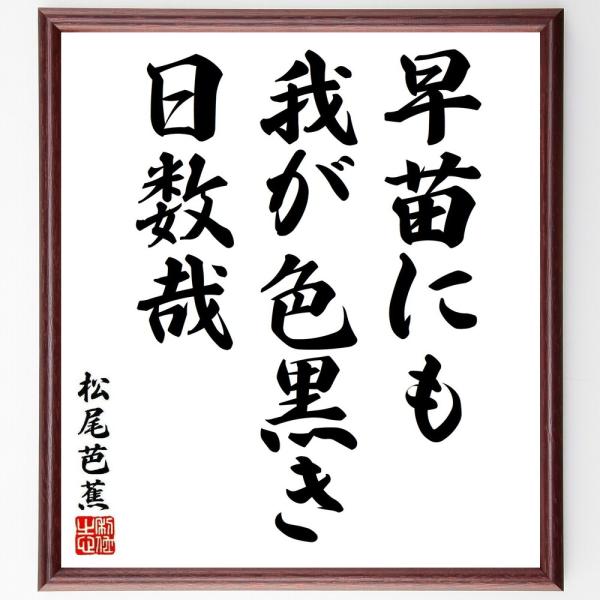 早苗にも
我が色黒き
日数哉
松尾芭蕉